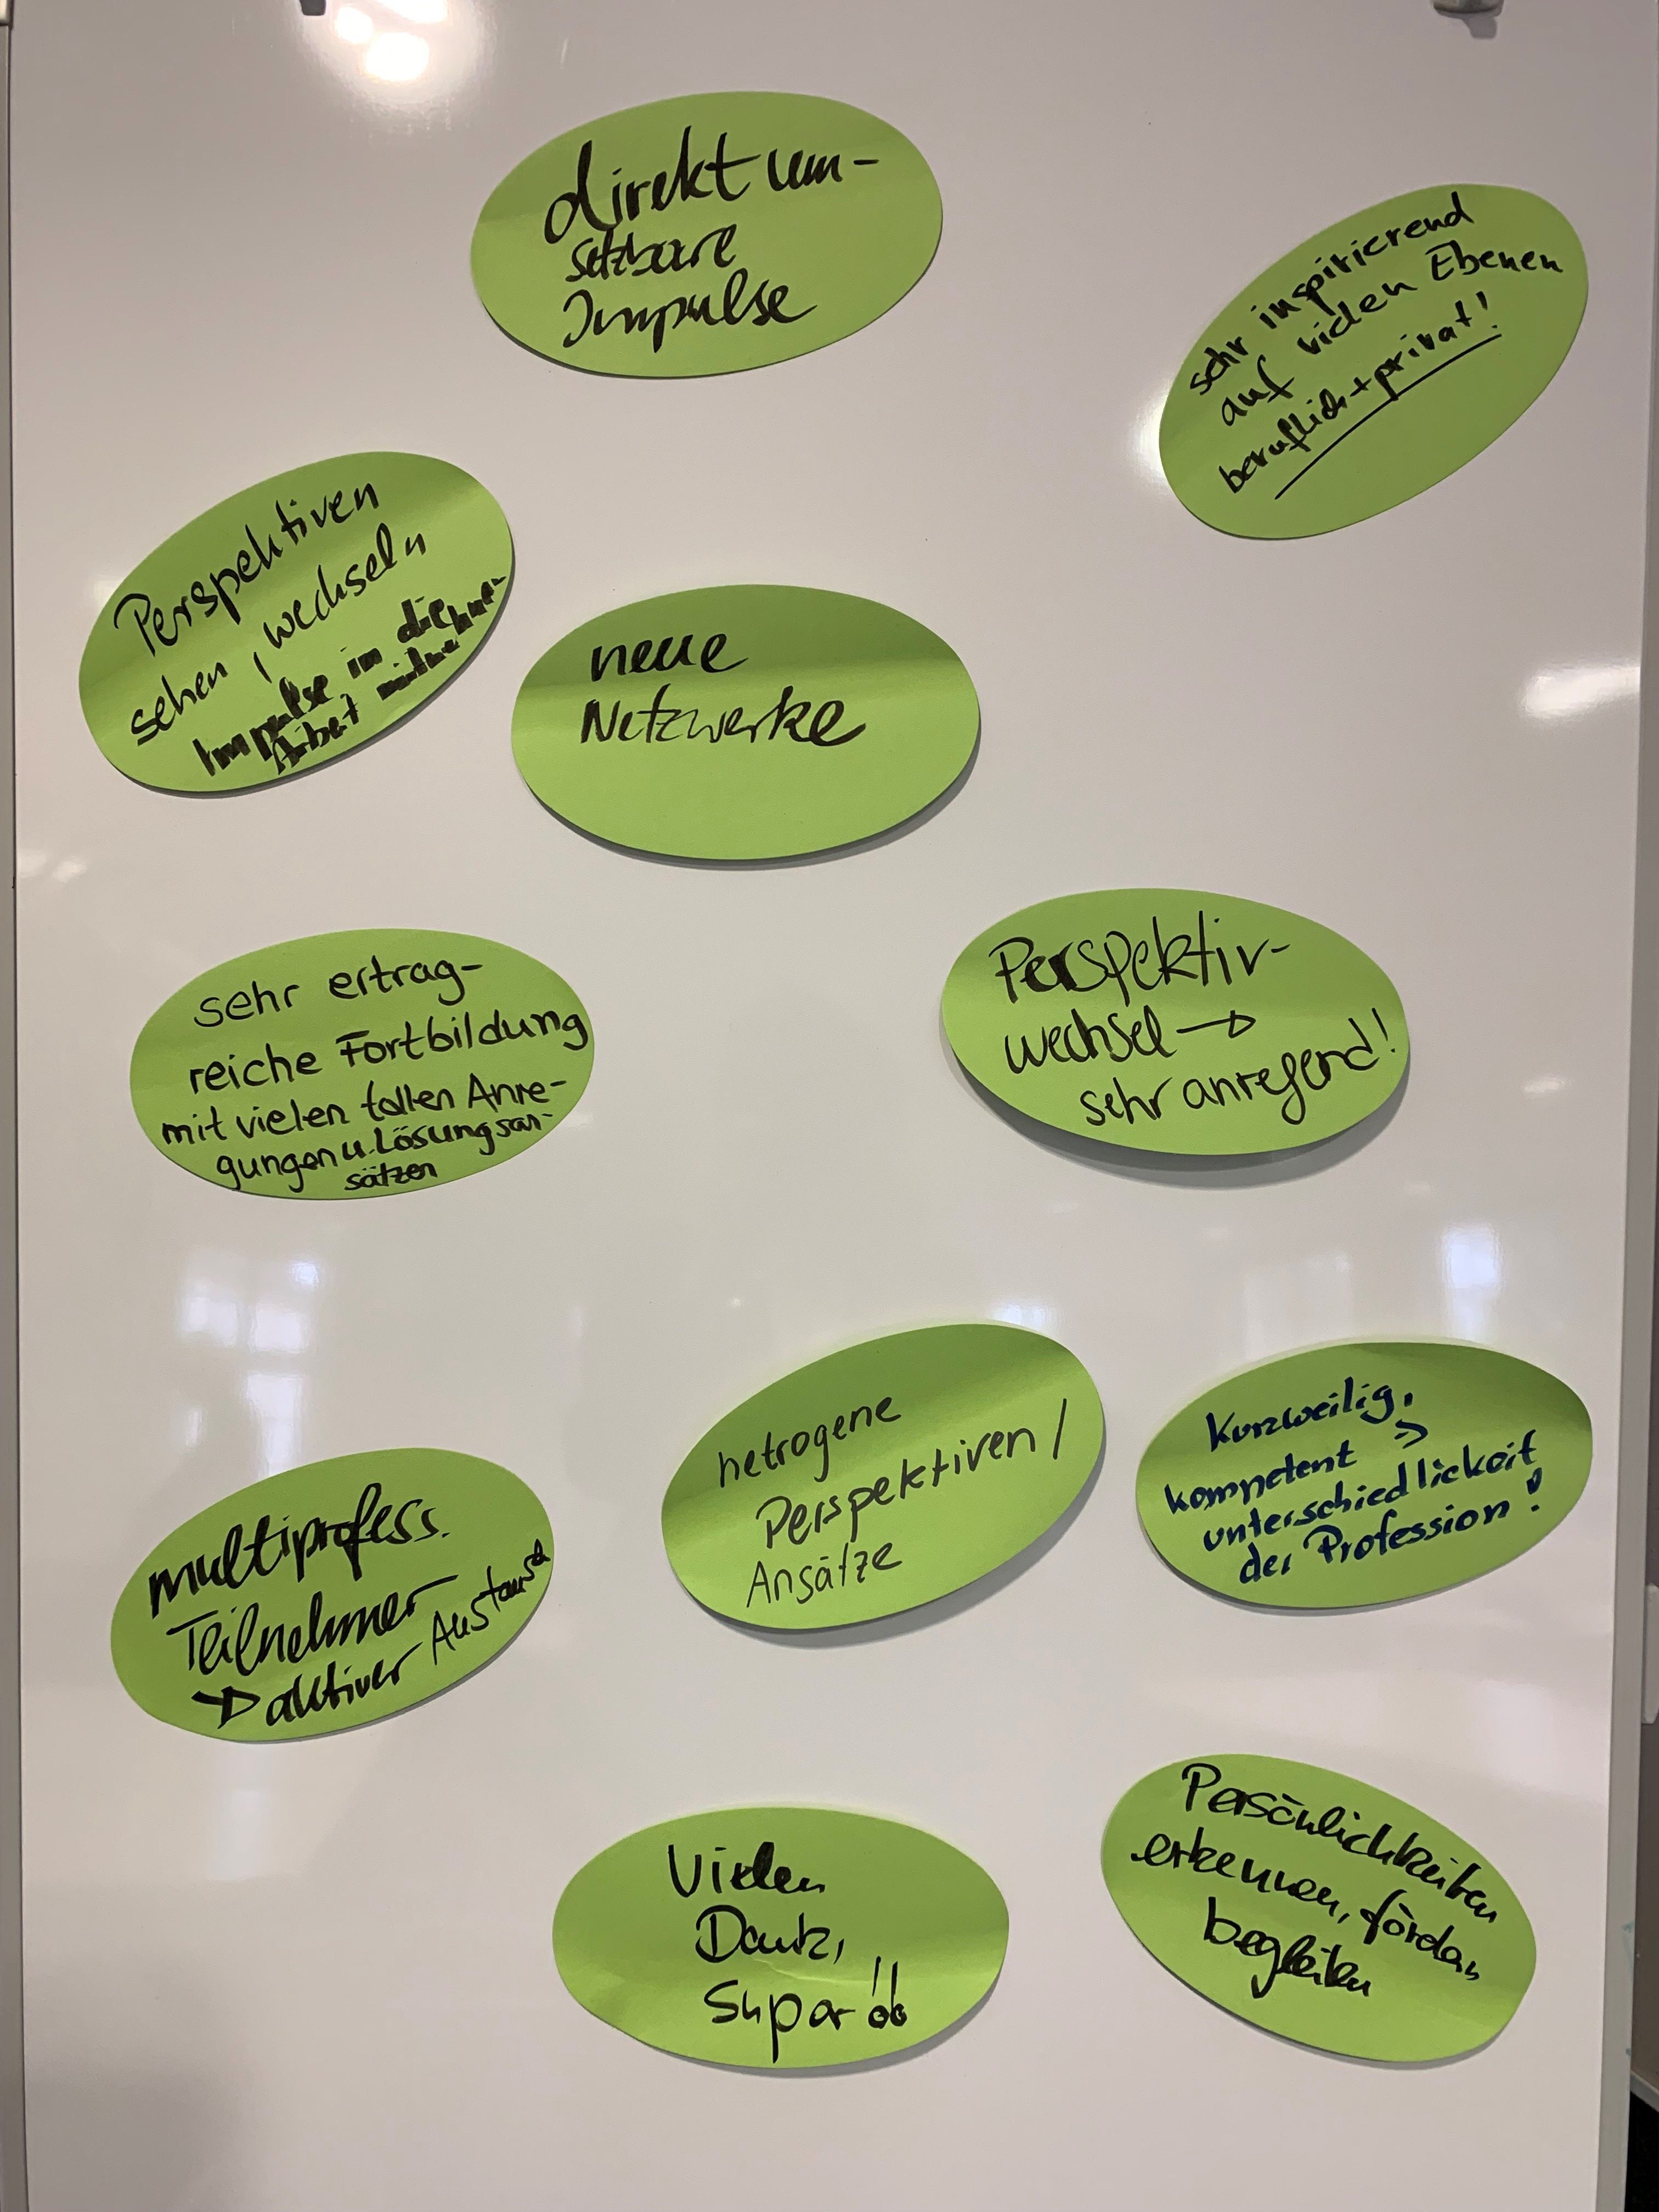 direkt um-
setzbare
Impulse
sehr inspirierend
auf vielen Ebenen
beruflich + privat!
Perspektiven
sehen, wechseln
Impulse in die
Arbeit mitneh-
neue
Netzwerke
sehr ertrag-
reiche Fortbildung
mit vielen tollen Anre-
gungen u. Lösungsan-
sätzen
Perspektiv-
wechsel →
sehr anregend!
hetrogene
Perspektiven /
Ansätze
Kurzweilig,
kompetent =>
unterschiedlickeit
der Profession!
multiprofess.
Teilnehmer
→ aktiver Austausch
Vielen
Dank,
Super!!
Persönlichkeiten
erkennen, fördern,
begleiten